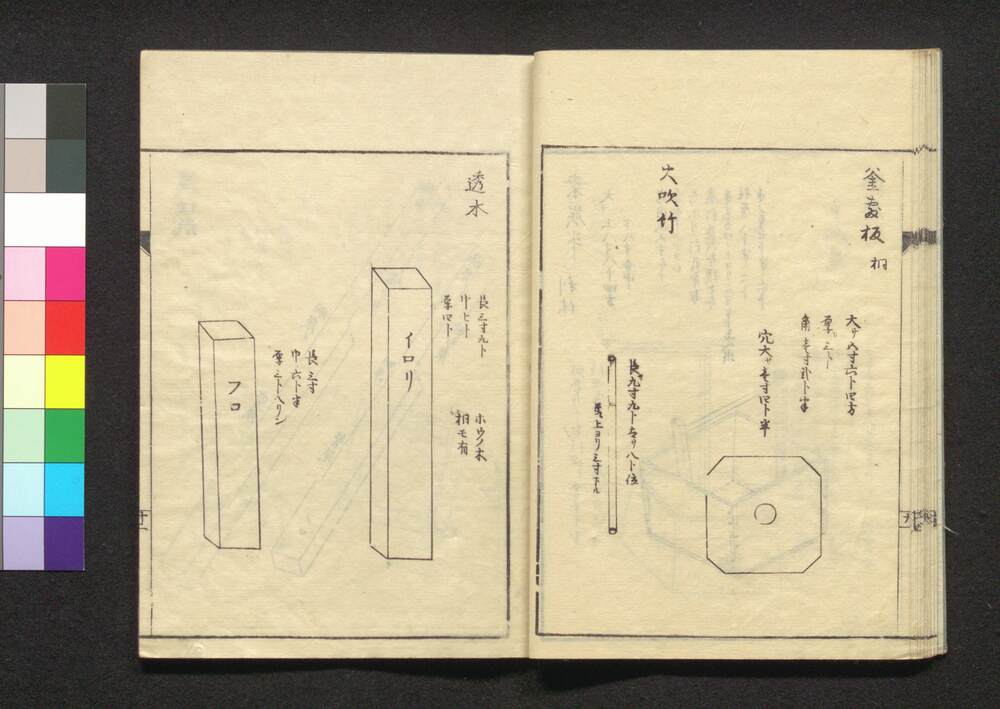 釜敷板 桐
大サ五寸六ト四方
厚サ三ト
角壱寸弐ト半
穴大サ壱寸四ト半
火吹竹
長九寸九ト太サ八ト位
節上ヨリ三寸下ル
透木
長三寸九ト
巾七ト
厚四ト
ホウノ木
桐モ有
イロリ
長三寸
巾六ト半
厚三ト八リン
フロ
十一